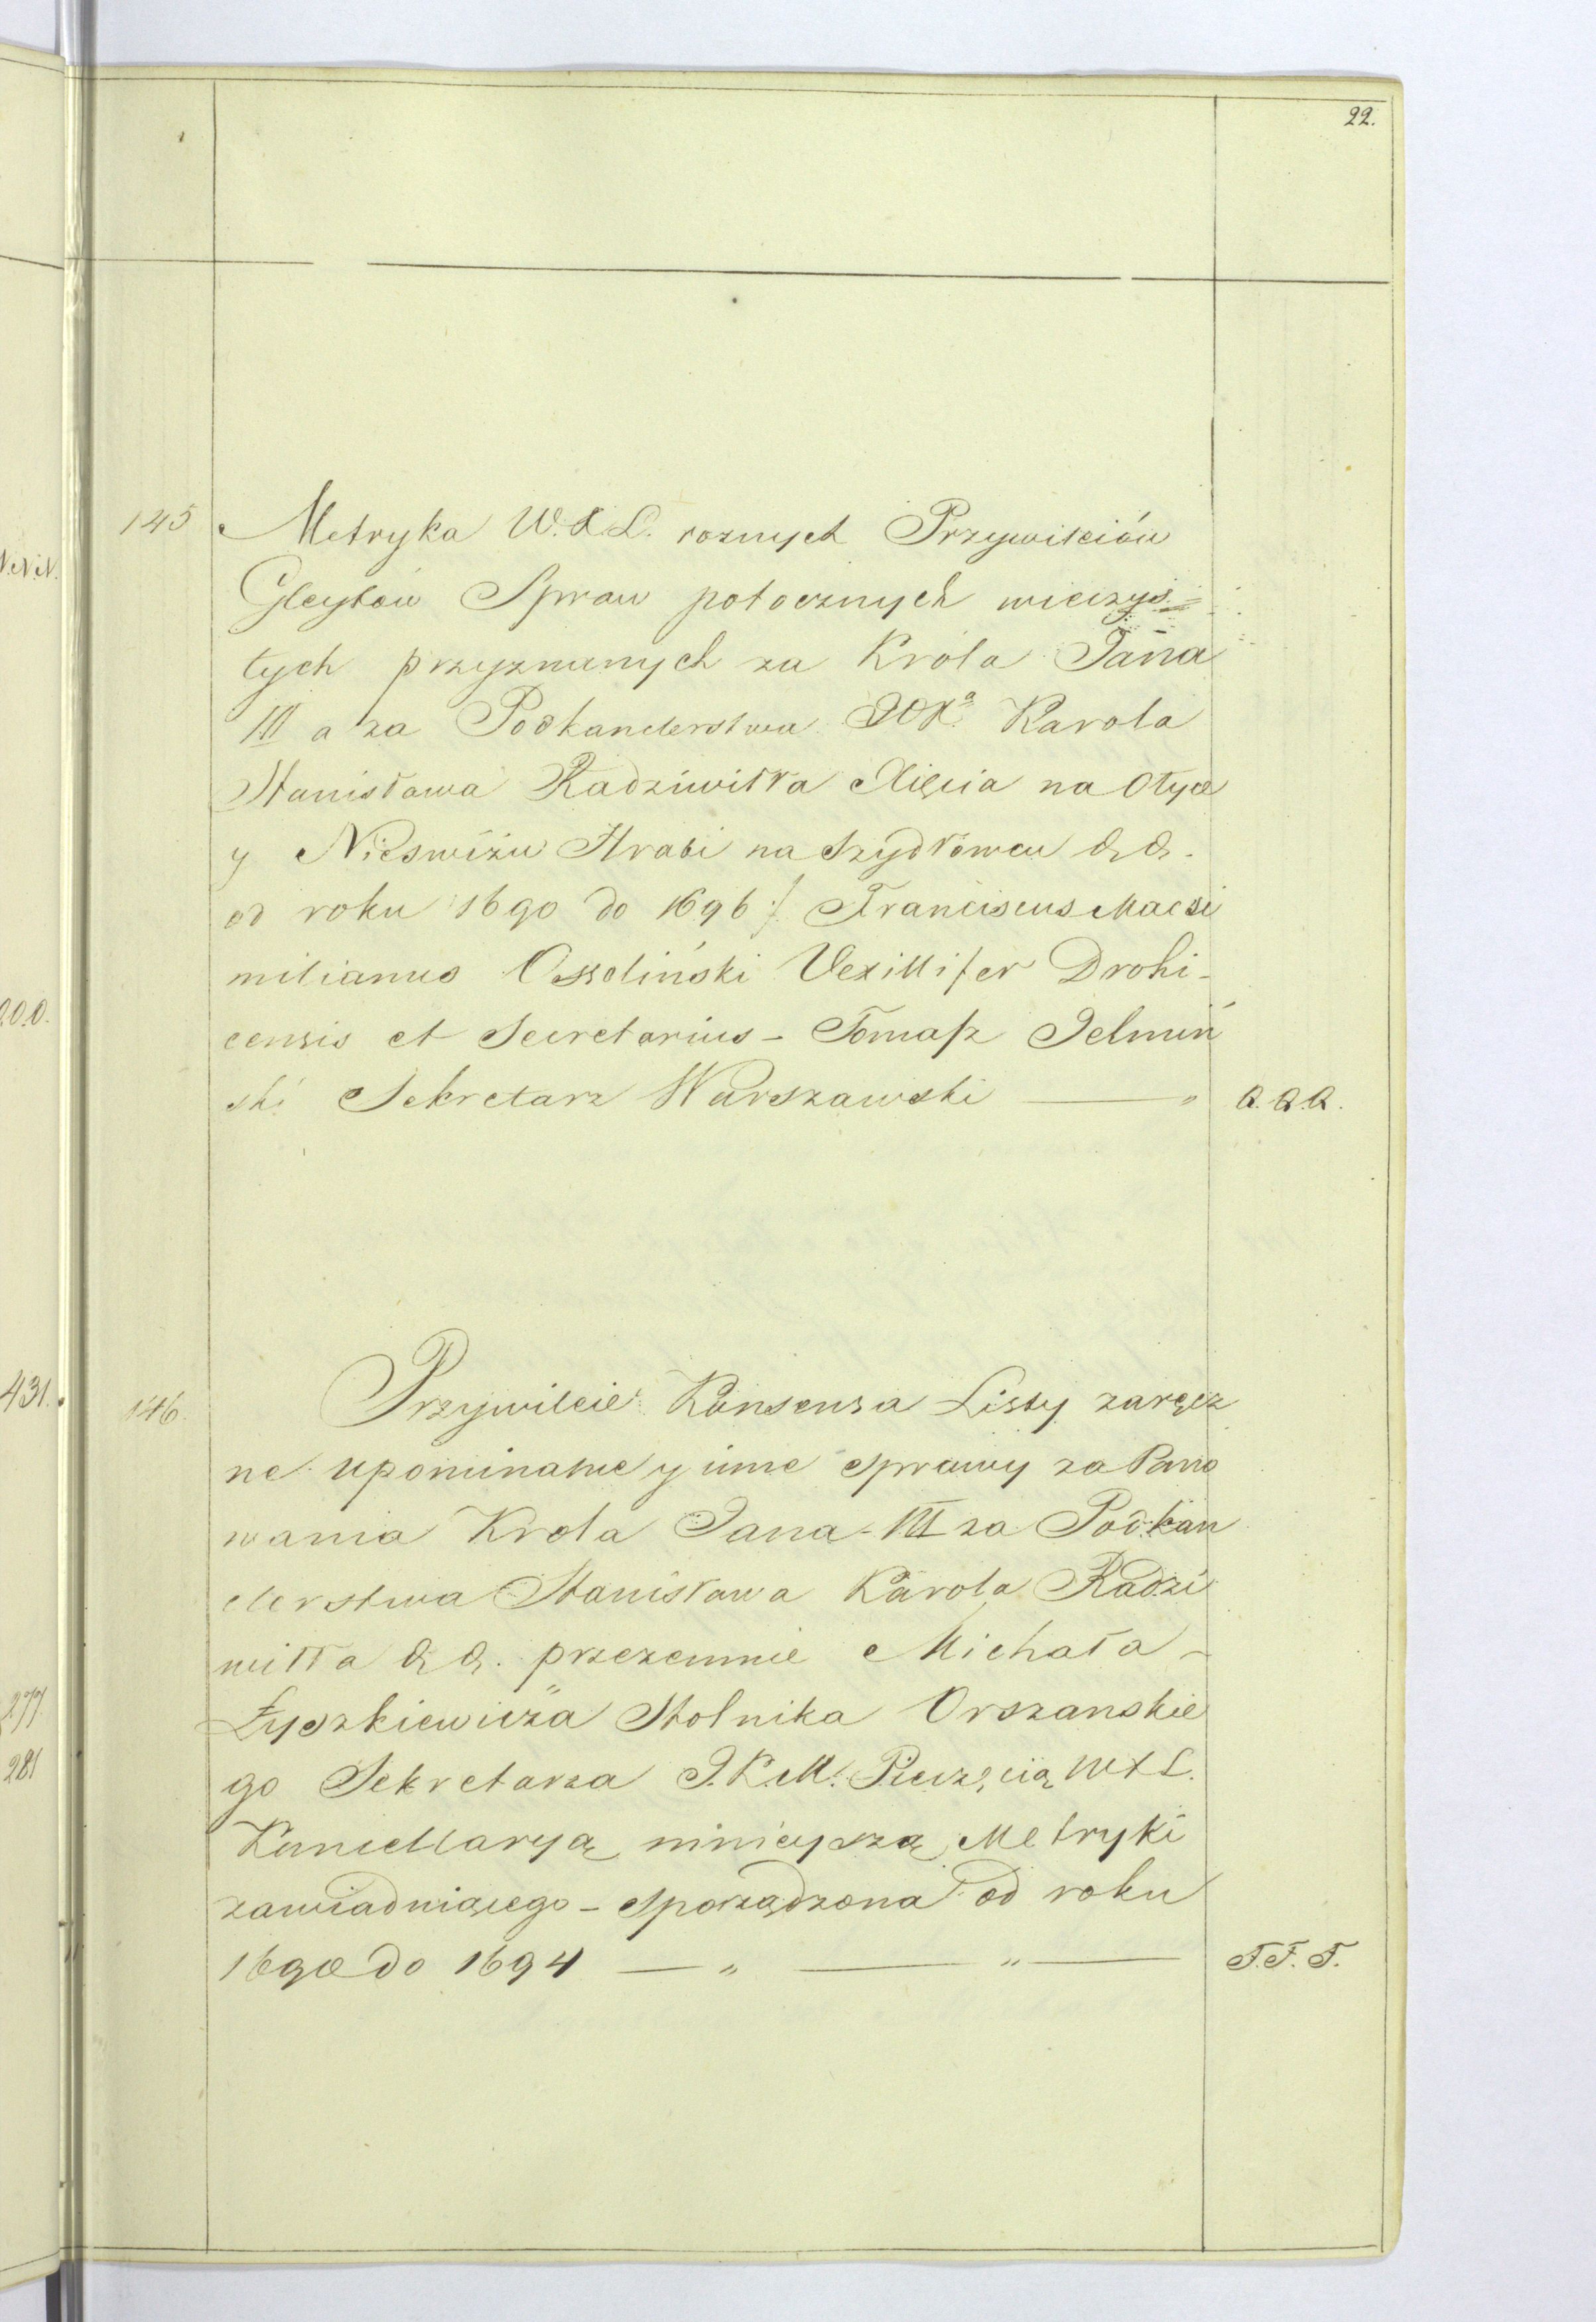 22.
145 Metryka W. X L. roznych Przywileiów
Gleytów Spraw potocznych wieczys=
tych przyznanych za Króla Jana
III a za Podkanclerstwa JOXa Karola
Stanisława Radziwiłła Xięcia na Ołyce
y Nieswiżu Hrabi na Szydłowcu & &.
od roku 1690 do 1696 /. Franciscus Macsi
milianus Ossoliński Vexillifer Drohi-
censis et Secretarius - Tomasz Jelmiń
ski Sekretarz Warszawski — " Q. Q. Q.
146. Przywileie Konsensa Listy zaręcz
ne upominalne y inne sprawy za Pano
wania Krola Jana - III za Podkan
clerstwa Stanisława Karola Radzi
wiłła & &. przezemnie Michała -
Łyszkiewicza Stolnika Orszanskie
go Sekretarza J. K. M. Pieczęcią W X L.
Kancellaryą ninieyszą Metryki
zawiaduiącego - sporządzona od roku
1690 do 1694 — " — " — T. T. T.
N. N. N.
O.O.O.
431.
277
281